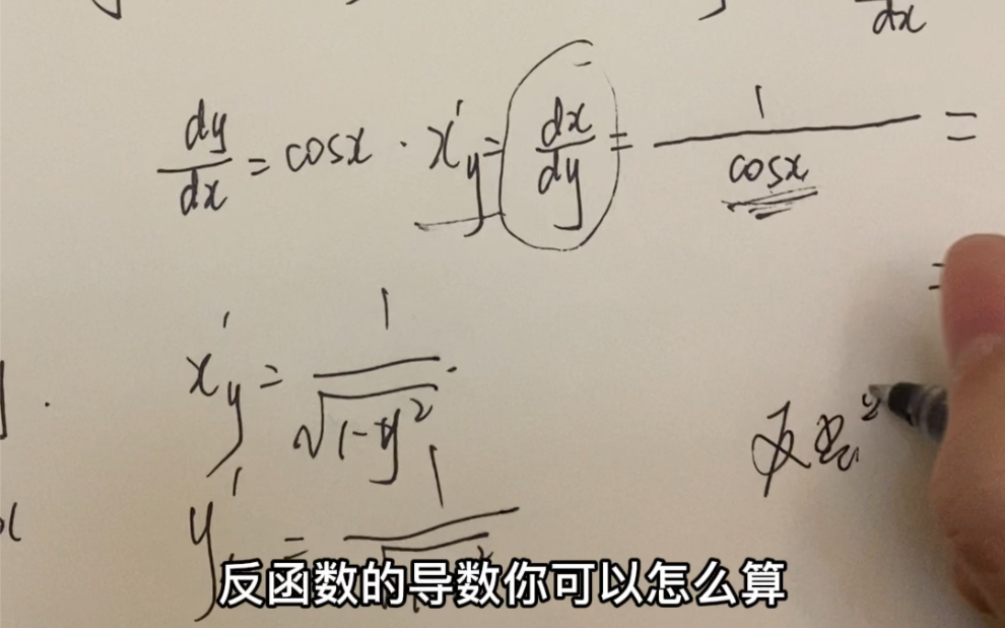 dx
dy/dx = cosx · x'y = dx/dy = 1/cosx =
=
x'y = 1/√(1-y²) .
y' = 1/√
反函数的导数你可以怎么算